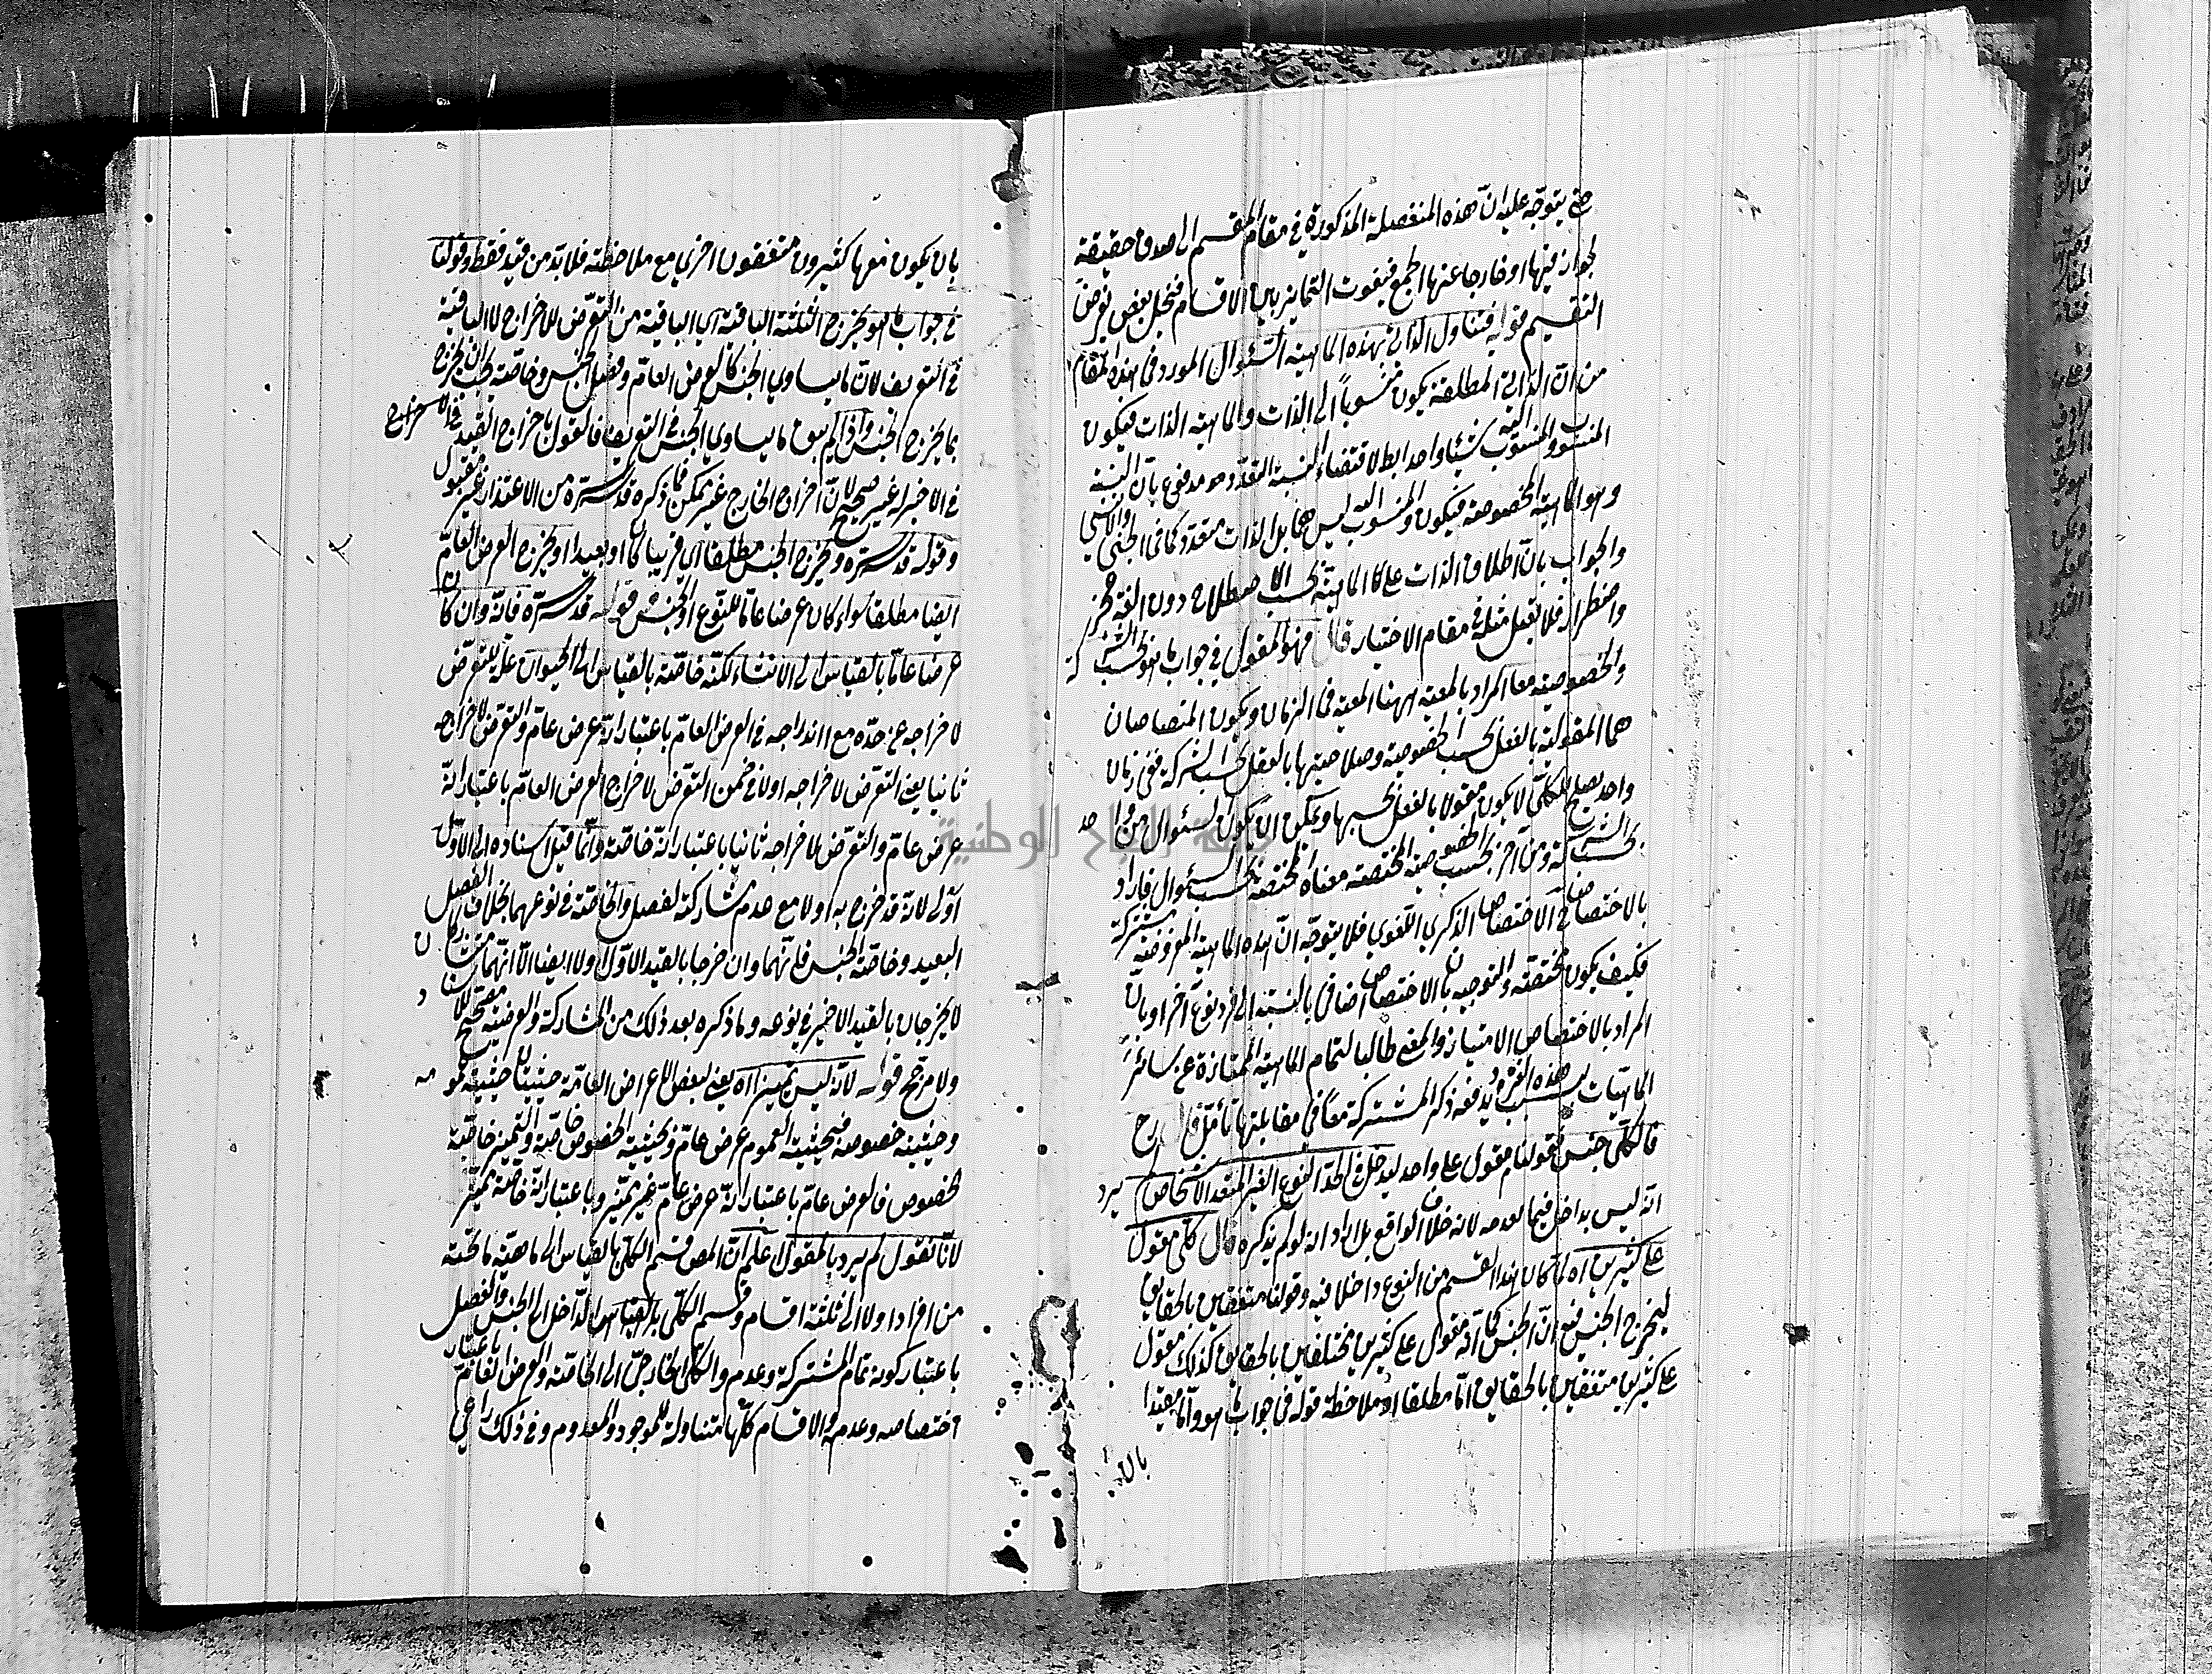 حتى يتوجّه عليه انّ هذه المنفصلة المذكورة في مقام التقسيم الى صدق حقيقة
لجواز فيها او خارجا عنها الجمع فيفوت التمايز بين الاقسام فيختل بعض غرض
التقسيم قوله فتناول الذاتي بهذه الماهية السئوال المورد في هذا المقام
من انّ الذاتي المطلقة يكون منسوبا الى الذات والماهية الذات فيكون
المنسوب والمنسوب اليه شيئا واحدا بط لاقتضاء النسبة التعدّد وهو مدفوع بانّ النسبة
وهو الماهية المخصوصة فيكون والمنسوب اليه ليس هما بل الذات متعدد كما في الجنسي والانسي
والجواب بانّ اطلاق الذات على الماهية بحسب الاصطلاح دون اللغة عجز
واضطرار فلا يقبل مثله في مقام الاختيار قال فهو المقول في جواب ما هو بحسب الشركة
والخصوصية معا المراد بالمعية ههنا المعية في الزمان ويكون المتصاصان
هما المقولية بالفعل بحسب الخصوصية وصلاحيتها بالعقل بحسب الشركة ففي زمان
واحد يصلح الكلّي لا يكون مقولا بالفعل بحسبها ويمكن ان يكون السئوال من واحد
بحسب الشركة ومن آخر بحسب الخصوصية المختصة معناه المختصة بحسب السئوال فاراد
بالاختصاص الاختصاص الذكري اللغوي فلا يتوجّه انّ هذه الماهية المفروضة مشتركة
فكيف يكون مختصّة والتوجيه بانّ الاختصاص اضافي بالنسبة الى فرد نوع آخر او بانّ
المراد بالاختصاص الامتياز والمعنى طالبا لتمام الماهية الممتازة عن سائر
الماهيات بسبب هذه الفرد يدفعه ذكر المشتركة معا في مقابلتها تأمّل قال الشارح
فالكلّي جنس فقولنا مقول على واحد ليدخل في الحدّ النوع الغير المتعدد الاشخاص يرد
انّه ليس بداخل فيما بعدمه لانه خلاف الواقع بل اراد انه لو لم يذكره قال كلّي مقول
على كثيرين اه لما كان هذا القسم من النوع داخلا فيه وقولنا متفقين بالحقايق
ليخرج الجنس فيه انّ الجنس كما انّه مقول على كثيرين مختلفين بالحقايق كذلك مقول
على كثيرين متفقين بالحقايق امّا مطلقا او ملاحظة قوله في جواب ما هو وامّا مقيّدا
بان
بان يكون معها كثيرون متفقون اخرى مع ملاحظته فلا بدّ من قيد فقط وقولنا
في جواب ما هو يخرج الثلثة الباقية اي الباقية من التعرّض للاخراج لا الباقية
في التعريف لان ما يساوي الجنس كالعرض العامّ وفصل الجنس وخاصّته يجب ان يخرج
بما يخرج الجنس واذا لم يبق ما يساوي الجنس في التعريف فالقول باخراج القيد في الاخراج
في الاخير له غير صحيح لانّ اخراج الخارج غير ممكن فما ذكره قدّس سرّه من الاعتذار غير مقبول
وقوله قدّس سرّه ويخرج الجنس مطلقا اي قريبا كان او بعيدا ويخرج العرض العامّ
ايضا مطلقا سواء كان عرضا عامّا للنوع او الجنس قوله قدّس سرّه فانّه وان كان
عرضا عامّا بالقياس الى الانسان لكنّه خاصّة بالقياس الى الحيوان علّة للتعرّض
لاخراجه عن حدّه مع اندراجه في العرض العامّ باعتبار انّه عرض عامّ والتعرّض لاخراجه
ثانيا يعني التعرّض لاخراجه اولا في ضمن التعرّض لاخراج العرض العامّ باعتبار انّه
عرض عامّ والتعرّض لاخراجه ثانيا باعتبار انّه خاصّة وانّما قيل اسناده الى الاوّل
اولى لانّه قد خرج به اولا مع عدم مشاركة الفصل والخاصّة في نوعهما بخلاف الفصل
البعيد وخاصّة الجنس فانّهما وان خرجا بالقيد الاوّل اولا ايضا الّا انّهما متشاركان
لا يخرجان بالقيد الاخير في نوعه وما ذكره بعد ذلك من المشاركة والعرضية مصحّح للاسناد
ولا مرجّح قوله لانّه ليس مميّزا اه يعني لبعض الاعراض العامّة حيثيتان حيثية عمومه
وحيثية خصوصه فبحيثية العموم عرض عامّ وبحيثية الخصوص خاصّة والتمييز خاصّة
لخصوص فالعرض عامّ باعتبار انّه عرض عامّ غير مميّز وباعتبار انّه خاصّة مميّز
لانّا نقول لم يرد بالمقول اعلم انّ المص قسم الكلّي بالقياس الى ماهيّة ما تحته
من افراد اولا الى ثلثة اقسام وقسم الكلّي بالقياس الداخل الى الجنس والفصل
باعتبار كونه تمام المشتركة وعدمه والكلّي الخارجي الى الخاصّة والعرض العامّ باعتبار
اختصاصه وعدمه والاقسام كلّها متناولة للموجود والمعدوم وفي ذلك راعي
جامعة النجاح الوطنية